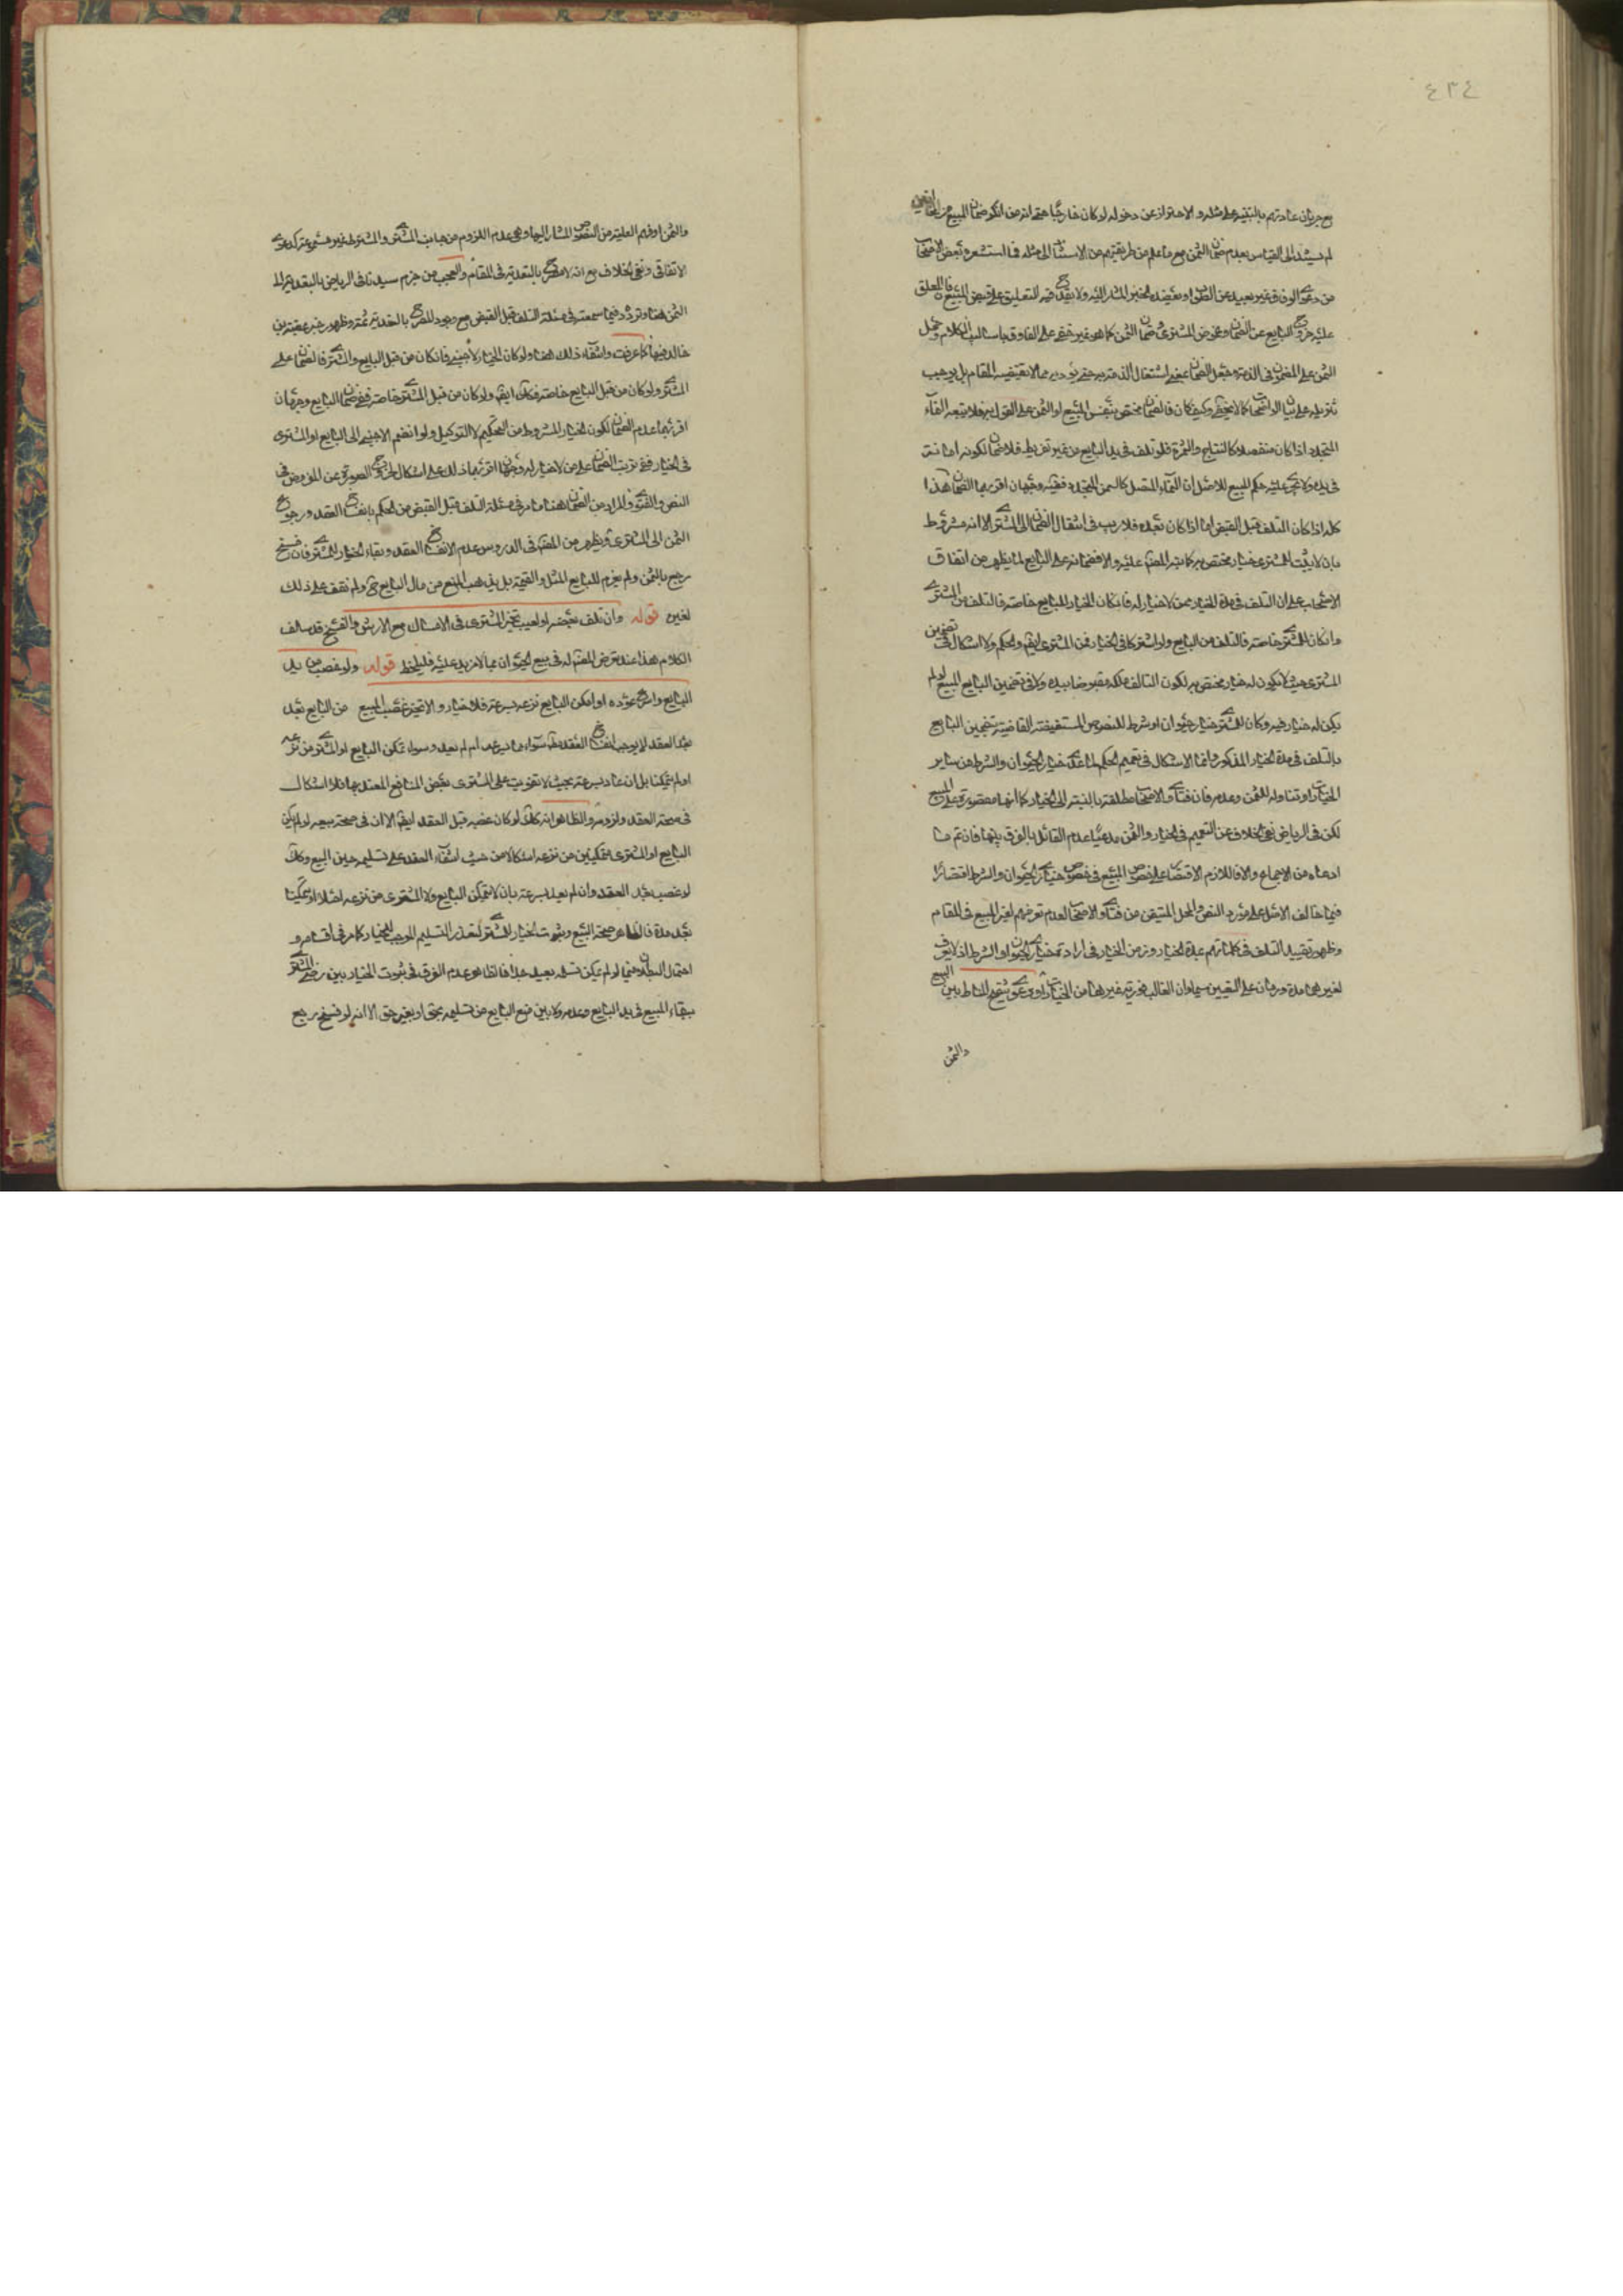 ٤٣٤
مع جريان عادتهم بالتنبيه على مثله والاحتراز عن دخوله لو كان خارجا حتى ان من انكر ضمان المبيع من
لم يستند الى القياس بعدم ضمان الثمن مع ما علم من طريقتهم من الاستناد الى مثله
من دعوى الوفاق غير بعيد عن الصواب ويعضده الخبر المشار اليه ولا يقدح فيه التعليق على قبض المبيع المعلق
عليه خروج البايع عن الضمان وعوض المشترى ضمان الثمن كما هو غير خفى على العارف باساليب الكلام وحمل
الثمن على المضمون فى الذمة وجعل الضمان بمعنى اشتغال الذمة به حتى يؤديه مما لا يقتضيه المقام بل يوجب
تنزيله على بيان الواضحات كما لا يخفى وكيف كان فالضمان مختص بنفس المبيع او الثمن على القول به فلا يتبعه النماء
المتجدد اذا كان منفصلا كالنتاج والثمرة فلو تلف فى يد البايع من غير تفريط فلا ضمان لكونه امانة
فى يده ولا يجرى عليه حكم المبيع للاصل اما النماء المتصل كالسمن المتجدد ففيه وجهان اقربهما الضمان هذا
كله اذا كان التلف قبل القبض اما اذا كان بعده فلا ريب فى انتقال الضمان الى المشترى الا انه مشروط
بان لا يثبت للمشترى خيار مختص به كما نبه المصنف عليه والا فضمانه على البايع لما يظهر من اتفاق
الاصحاب على ان التلف فى مدة الخيار ممن لا خيار له فان كان الخيار للبايع خاصة فالتلف من المشترى
وان كان للمشترى خاصة فالتلف من البايع ولو اشتركا فى الخيار فمن المشترى ايضا والحكم ولا اشكال فى تضمين
المشترى حيث لا يكون له خيار مختص به لكون التالف ملكه مقبوضا بيده ولا فى تضمين البايع المبيع لو لم
يكن له خيار فيه وكان للمشترى خيار حيوان او شرط للنصوص المستفيضة القاضية بتضمين البايع
بالتلف فى مدة الخيار المذكور وانما الاشكال فى تعميم الحكم لما عدا خيار الحيوان والشرط من ساير
الخيارات او تناوله للثمن وعدمه فان فتاوى الاصحاب مطلقة بالنسبة الى الخيار كما انها مقصورة على المبيع
لكن فى الرياض نفى الخلاف عن التعميم فى الخيار والثمن مدعيا عدم القائل بالفرق بينهما فان تم ما
ادعاه من الاجماع والا فاللازم الاقتصار على خصوص المبيع فى خصوص خيارى الحيوان والشرط اقتصارا
فيما خالف الاصل على مورد النص والمحل المتيقن من فتاوى الاصحاب لعدم تعرضهم لغير المبيع فى المقام
وظهور تقييد التلف فى كلماتهم بمدة الخيار وزمن الخيار فى ارادة خيارى الحيوان او الشرط اذ لا يعرف
لغيرهما مدة وزمان على التعيين سيما وان الغالب فورية غيرهما من الخيارات ودعوى تنقيح المناط بين المبيع
والثمن
والثمن او فهم العلية من النصوص المشار اليها وهى عدم اللزوم من جانب المشترى والمشترط غير مسموعة كدعوى
الاتفاق ونفى الخلاف مع انه لا مصرح بالتعدية فى المقام والعجب من جزم سيدنا فى الرياض بالتعدية الى
الثمن هنا وتردد فيما سمعته فى مسئلة التلف قبل القبض مع وجود المصرح بالتعدية ثمة وظهور خبر عقبة بن
خالد فيها كما عرفت وانتفاء ذلك هنا ولو كان الخيار لاجنبى فان كان من قبل البايع والمشترى فالضمان على
المشترى ولو كان من قبل البايع خاصة فكك ايضا ولو كان من قبل المشترى خاصة ففى ضمان البايع وجهان
اقربهما عدم الضمان لكون الخيار المشروط من التحكيم لا التوكيل ولو انضم الاجنبى الى البايع او المشترى
فى الخيار ففى ترتب الضمان على من لا خيار له وجهان اقربهما ذلك على اشكال لخروج الصورة عن المفروض فى
النص والفتوى والمراد من الضمان هنا ما مر فى مسئلة التلف قبل القبض من الحكم بانفساخ العقد ورجوع
الثمن الى المشترى ويظهر من المصنف فى الدروس عدم الانفساخ العقد وبقاء الخيار للمشترى فان فسخ
رجع بالثمن ولم يغرم للبايع المثل والقيمة بل يذهب المبيع من مال البايع ح ولم نقف على ذلك
لغيره قوله وان تلف بعضه او تعيب تخير المشترى فى الامساك مع الارش والفسخ قد سلف
الكلام هذا عند تعرض المصنف له فى بيع الحيوان مما لا مزيد عليه فليلحظ قوله ولو غصب من يد
البايع واسرع عوده او امكن البايع نزعه بسرعة فلا خيار والا تخير غصب المبيع من البايع بعد
العقد لا يوجب انفساخ العقد سواء عاد بسرعة ام لم يعد وسواء تمكن البايع او المشترى من نزعه
او لم يتمكنا بل ان عاد بسرعة بحيث لا تفويت على المشترى بعض المنافع المعتد بها فلا اشكال
فى صحة العقد ولزومه والظاهر انه كك لو كان غصبه قبل العقد ايضا الا ان فى صحة بيعه لو لم يكن
البايع او المشترى متمكنين من نزعه اشكالا من حيث انتفاء القدرة على تسليمه حين البيع وكك
لو غصب بعد العقد وان لم يعد بسرعة بان لا يتمكن البايع ولا المشترى من نزعه اصلا او تمكنا
بعد مدة فالظاهر صحة البيع وثبوت الخيار للمشترى لتعذر التسليم الموجب للخيار كما مر فى اقسامه و
احتمال البطلان فيما لو لم يكن تسليمه بعيد جدا فالظاهر عدم الفرق فى ثبوت الخيار بين رضى المشترى
ببقاء المبيع فى يد البايع وعدمه ولا بين منع البايع من تسليمه بحق او بغير حق الا انه لو فسخ رجع